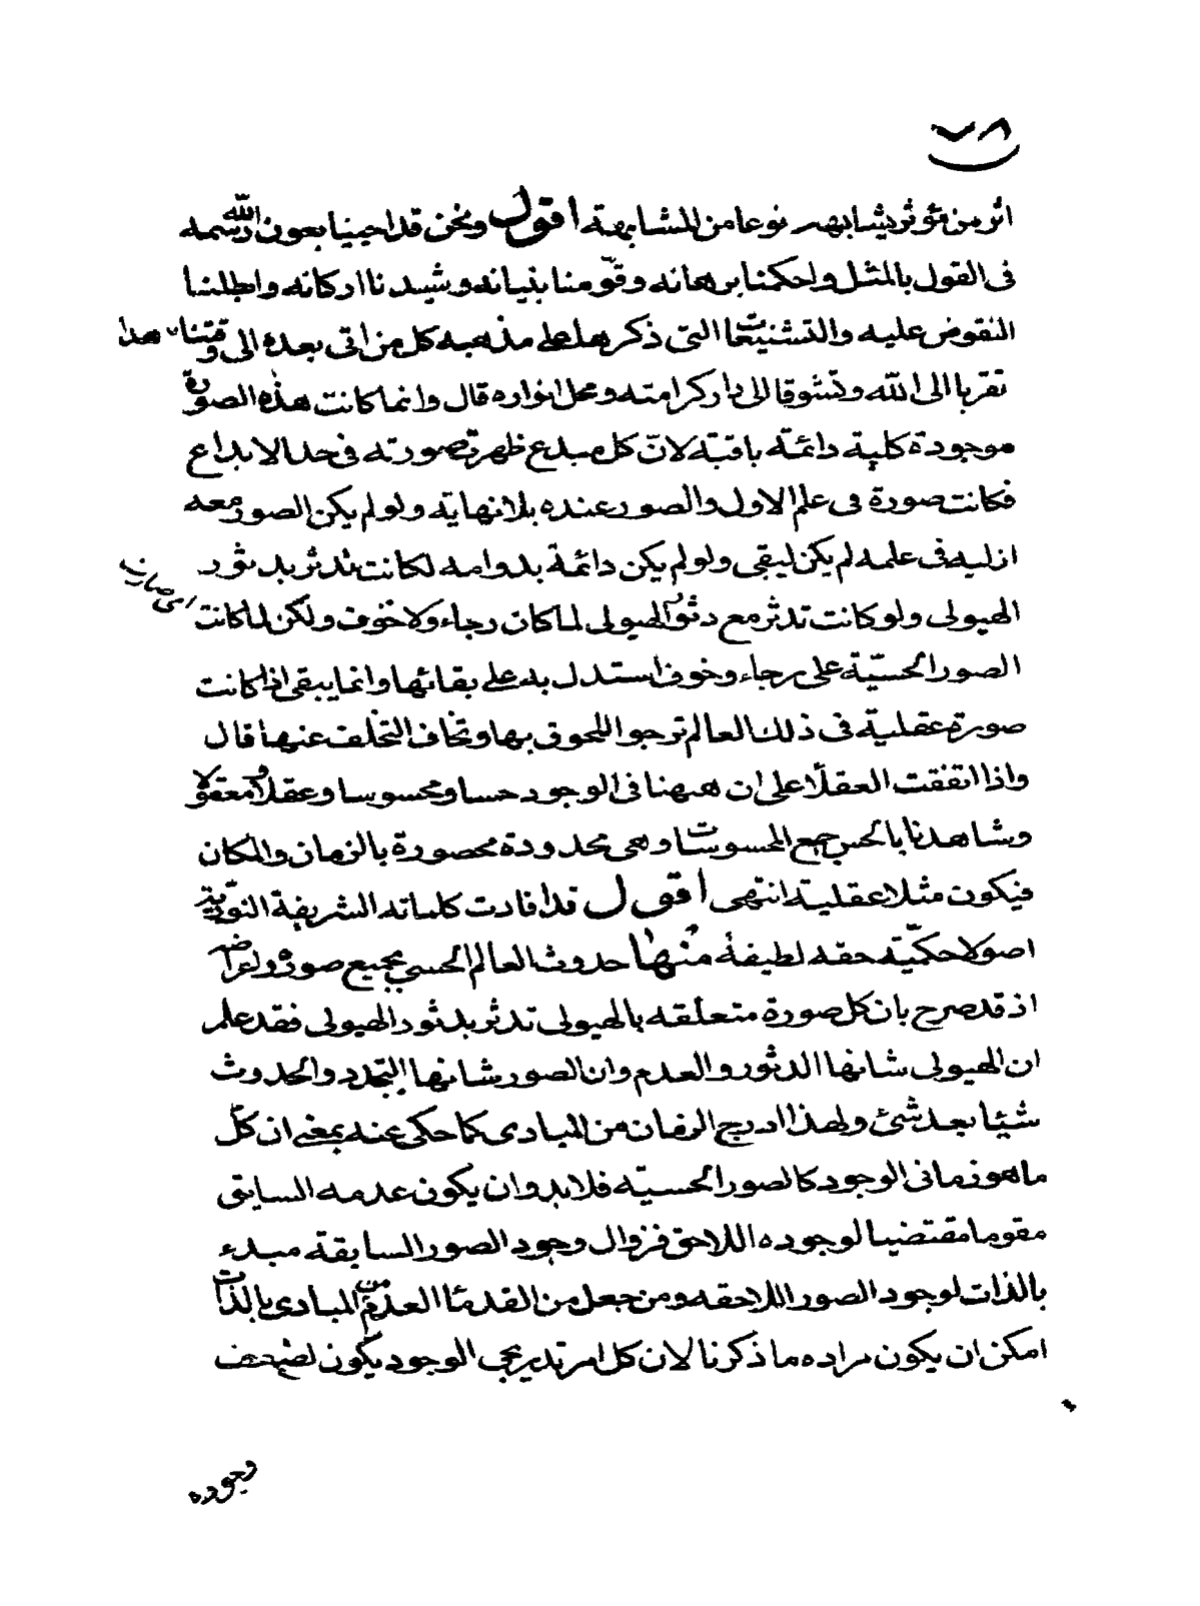 ٧٨
اثر من مؤثر يشابهه نوعا من المشابهة اقول ونحن قد احيينا بعون الله رسمه
فى القول بالمثل واحكمنا برهانه وقوّمنا بنيانه وشيدنا اركانه وابطلنا
النقوض عليه والتشنيعات التى ذكرها على مذهبه كل من اتى بعده الى وقتنا هذا
تقربا الى الله وتشوقا الى دار كرامته ومحل انواره قال وانما كانت هذه الصورة
موجودة كلية دائمة باقية لانّ كل مبدع ظهرت صورته فى حد الابداع
فكانت صورة فى علم الاول والصور عنده بلا نهاية ولو لم يكن الصور معه
ازلية فى علمه لم يكن ليبقى ولو لم يكن دائمة بدوامه لكانت تدثر بدثور
الهيولى ولو كانت تدثر مع دثور الهيولى لما كان رجاء ولا خوف ولكن لما كانت
الصور الحسيّة على رجاء وخوف استدل به على بقائها وانما يبقى اذا كانت
صورة عقلية فى ذلك العالم ترجوا اللحوق بها وتخاف التخلف عنها قال
واذا اتفقت العقلاء على ان ههنا فى الوجود حسا ومحسوسا وعقلا ومعقولا
وشاهدنا بالحس جميع المحسوسات وهى محدودة محصورة بالزمان والمكان
فيكون مثلا عقلية انتهى اقول قد افادت كلماته الشريفة النورية
اصولا حكميّة حقه لطيفة منها حدوث العالم الحسي بجميع صوره واعراضه
اذ قد صرح بان كل صورة متعلقه بالهيولى تدثر بدثور الهيولى فقد علم
ان الهيولى شانها الدثور والعدم وان الصور شانها التجدد والحدوث
شيئا بعد شئ ولهذا ادرج الزمان من المبادى كما حكى عنه بمعنى ان كلّ
ما هو زمانى الوجود كالصور الحسيّه فلا بد وان يكون عدمه السابق
مقوما مقتضيا لوجوده اللاحق فزوال وجود الصور السابقة مبدء
بالذات لوجود الصور اللاحقه ومن جعل من القدماء العدم من المبادى بالذات
امكن ان يكون مراده ما ذكرنا لان كل امر تدريجى الوجود يكون لضعف
وجوده